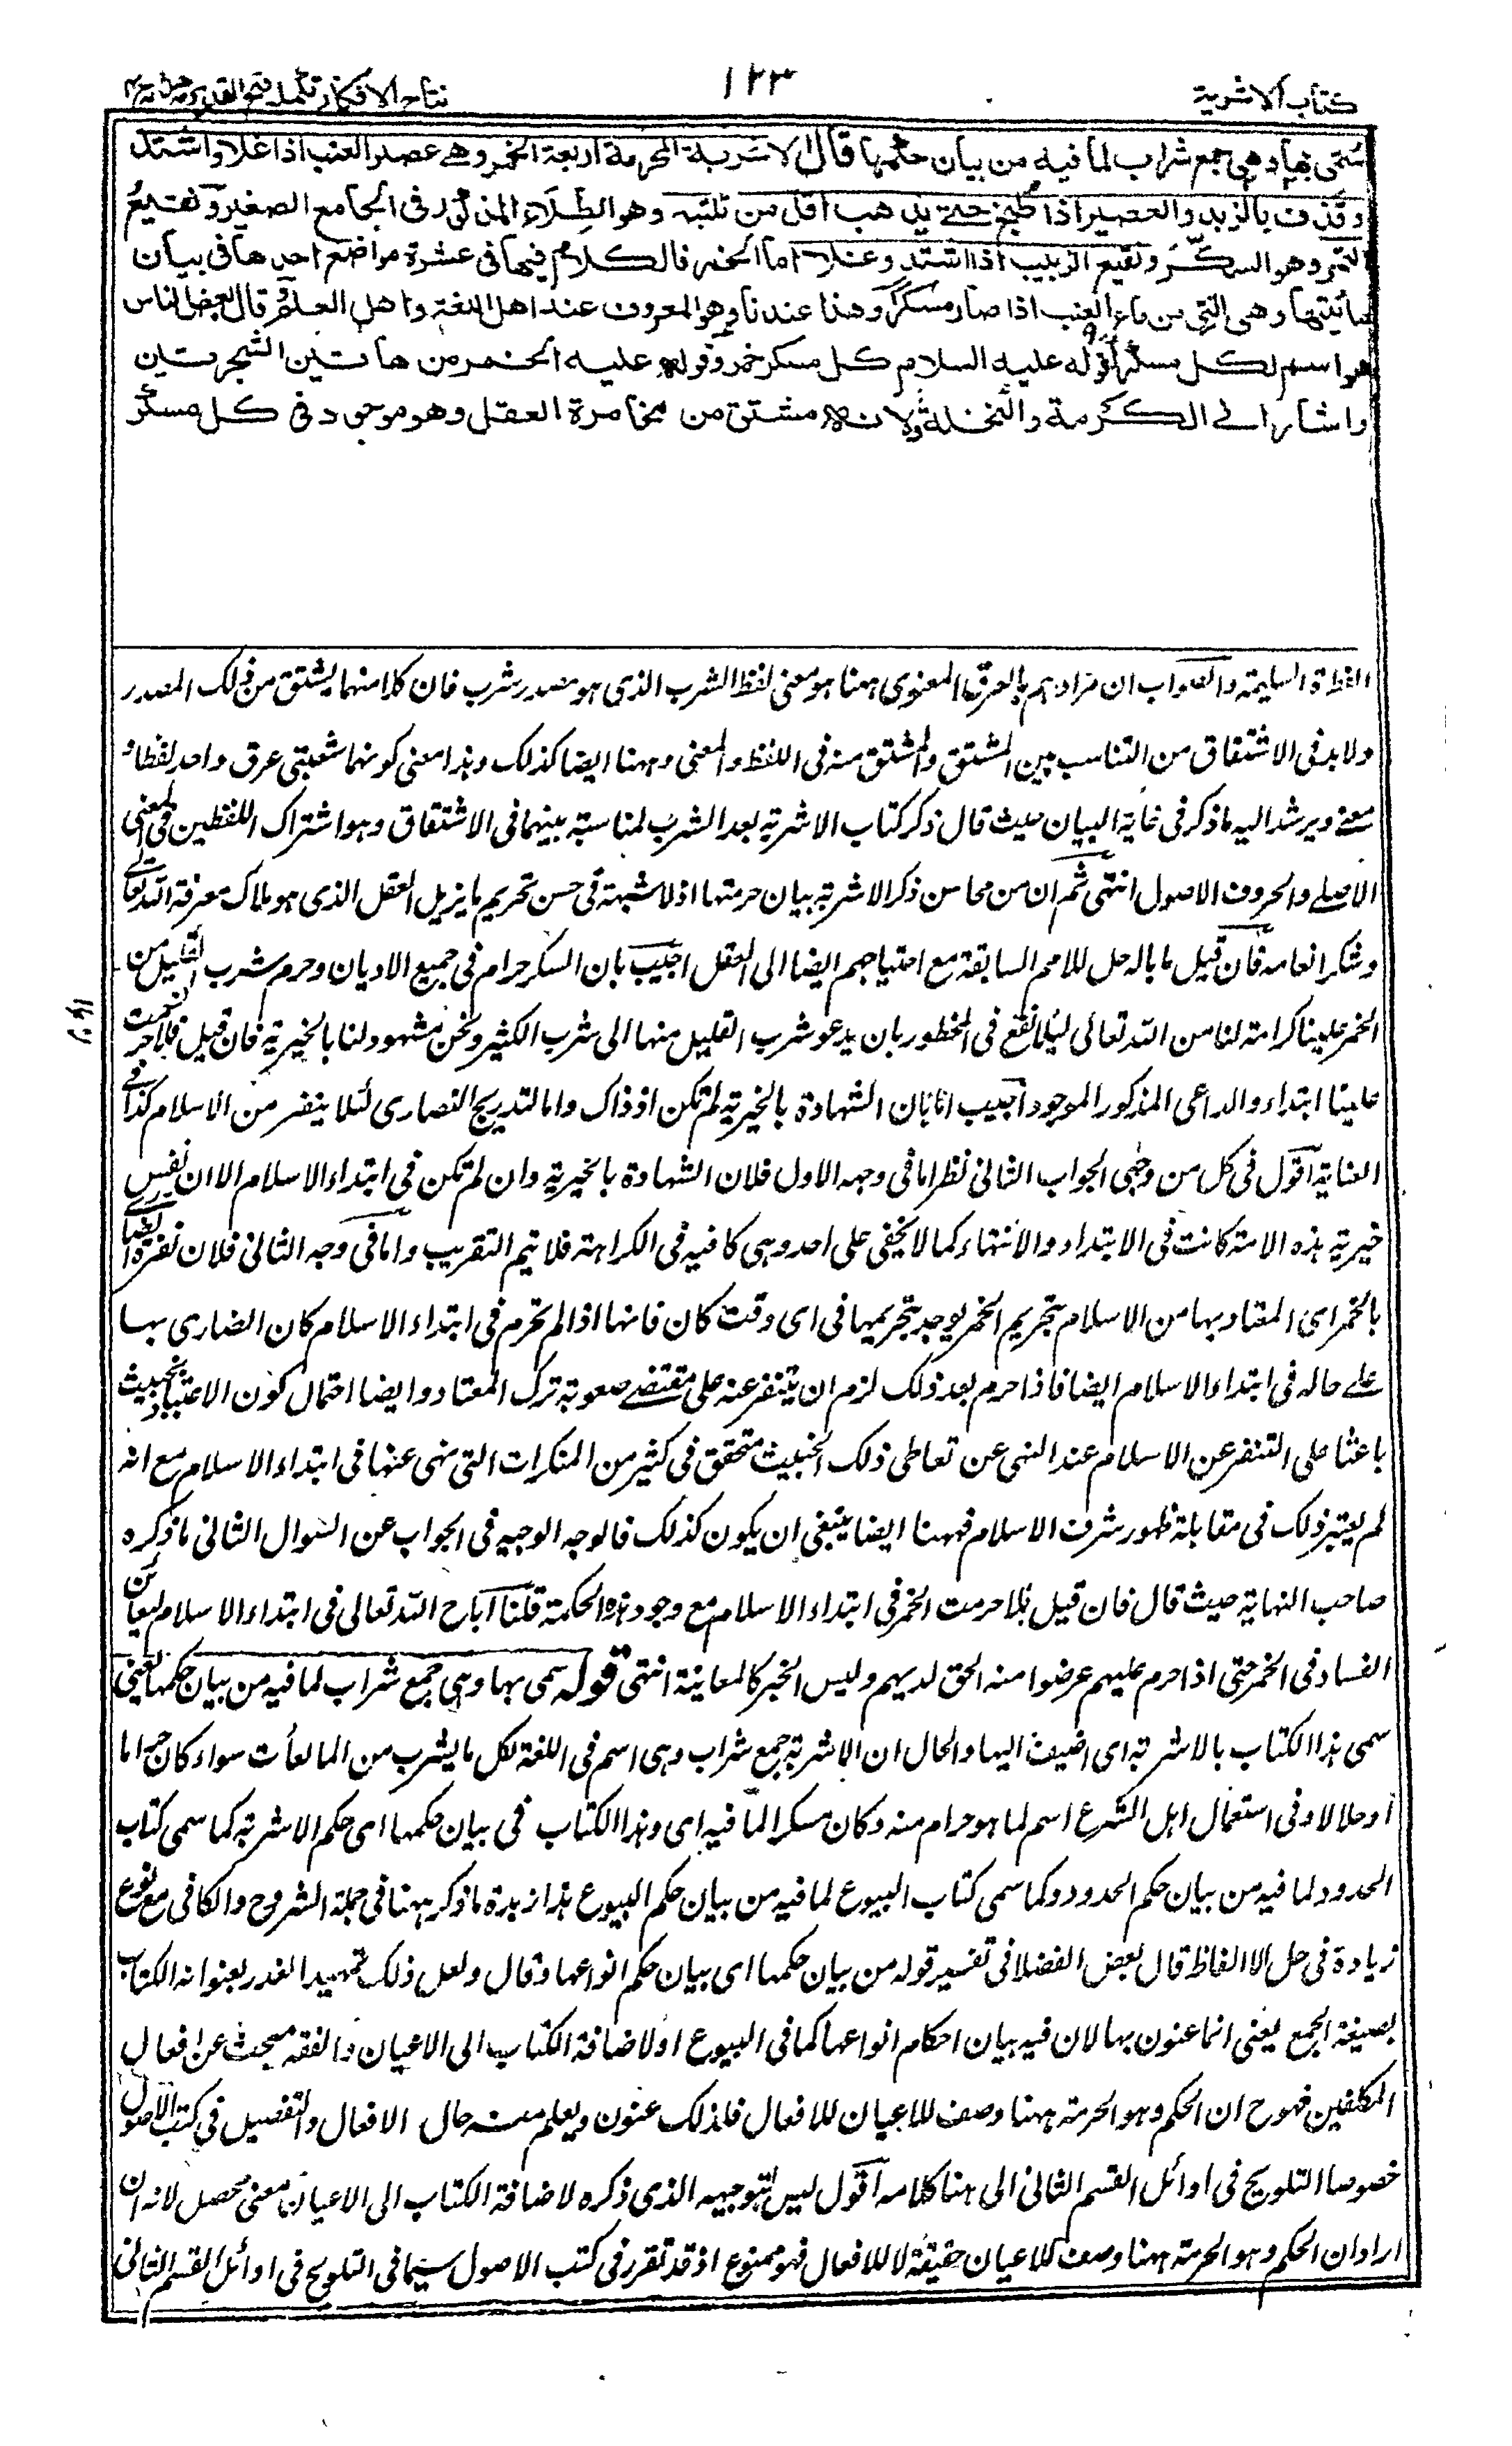 كتاب الاشربة
١٢٣
نتائج الافكار تكملة فتح القدير هداية ج ٤
سمى بها وهى جمع شراب لما فيه من بيان حكمها قال الاشربة المحرمة اربعة الخمر وهى عصير العنب اذا غلا واشتد
وقذف بالزبد والعصير اذا طبخ حتى يذهب اقل من ثلثيه وهو الطِلَاء المذكور فى الجامع الصغير ونقيعُ
التمر وهو السكَرُ ونقيع الزبيب اذا اشتد وغلا اما الخمر فالكلام فيها فى عشرة مواضع احدها فى بيان
مائيتها وهى النيّ من ماء العنب اذا صار مسكرًا وهذا عندنا وهو المعروف عند اهل اللغة واهل العلم وقال بعض الناس
هو اسم لكل مسكر لقوله عليه السلام كل مسكر خمر وقوله عليه الخمر من هاتين الشجرتين
واشار الى الكرمة والنخلة ولانه مشتق من مخامرة العقل وهو موجود فى كل مسكر
الفطرة السليمة والصواب ان مرادهم بالعرق المعنوى ههنا هو معنى لفظ الشرب الذى هو مصدر شرب فان كلا منهما يشتق من ذلك المصدر
ولا بد فى الاشتقاق من التناسب بين المشتق والمشتق منه فى اللفظ والمعنى وههنا ايضا كذلك وهذا معنى كونهما شعبتى عرق واحد لفظا و
معنى ويرشد اليه ما ذكر فى غاية البيان حيث قال ذكر كتاب الاشربة بعد الشرب لمناسبة بينهما فى الاشتقاق وهو اشتراك اللفظين فى المعنى
الاصلى والحروف الاصول انتهى ثم ان من محاسن ذكر الاشربة بيان حرمتها اذ لا شبهة فى حسن تحريم ما يزيل العقل الذى هو ملاك معرفة الله تعالى
وشكر انعامه فان قيل ما باله حل للامم السابقة مع احتياجهم ايضا الى العقل اجيب بان السكر حرام فى جميع الاديان وحرم شرب القليل من
الخمر علينا كرامة لنا من الله تعالى لئلا نقع فى المحظور بان يدعو شرب القليل منها الى شرب الكثير ونحن مشهود لنا بالخيرية فان قيل فلا حرمت
علينا ابتداء والداعى المذكور الموجود اجيب اما بان الشهادة بالخيرية لم تكن اذ ذاك واما لتدريج النصارى لئلا ينفر من الاسلام كذا فى
العناية اقول فى كل من وجهى الجواب الثانى نظر اما فى وجهه الاول فلان الشهادة بالخيرية وان لم تكن فى ابتداء الاسلام الا ان نفس
خيرية هذه الامة كانت فى الابتداء والانتهاء كما لا يخفى على احد وهى كافية فى الكراهة فلا يتم التقريب واما فى وجه الثانى فلان نفرة الضارى
بالخمر اى المعتاد بها من الاسلام بتحريم الخمر يوجد بتحريمها فى اى وقت كان فانها اذا لم تحرم فى ابتداء الاسلام كان الضارى بها
على حاله فى ابتداء الاسلام ايضا فاذا حرم بعد ذلك لزم ان يتنفر عنه على مقتضى صعوبة ترك المعتاد وايضا احتمال كون الاعتياد بخبيث
باعثا على التنفر عن الاسلام عند النهى عن تعاطى ذلك الخبيث متحقق فى كثير من المنكرات التى نهى عنها فى ابتداء الاسلام مع انه
لم يعتبر ذلك فى مقابلة ظهور شرف الاسلام فههنا ايضا ينبغى ان يكون كذلك فالوجه الوجيه فى الجواب عن السوال الثانى ما ذكره
صاحب النهاية حيث قال فان قيل هلا حرمت الخمر فى ابتداء الاسلام مع وجود هذه الحكمة قلنا اباح الله تعالى فى ابتداء الاسلام ليعاين
الفساد فى الخمر حتى اذا حرم عليهم عرضوا منه الحق لديهم وليس الخبر كالمعاينة انتهى قوله سمى بها وهى جمع شراب لما فيه من بيان حكمها يعنى
سمى هذا الكتاب بالاشربة اى اضيف اليها والحال ان الاشربة جمع شراب وهى اسم فى اللغة لكل ما يشرب من المائعات سواء كان حراما
او حلالا وفى استعمال اهل الشرع اسم لما هو حرام منه وكان مسكرا لما فيه اى وهذا الكتاب فى بيان حكمها اى حكم الاشربة كما سمى كتاب
الحدود لما فيه من بيان حكم الحدود وكما سمى كتاب البيوع لما فيه من بيان حكم البيوع هذا زبدة ما ذكر ههنا فى جملة الشروح والكافى مع نوع
زيادة فى حل الالفاظ قال بعض الفضلا فى تفسير قوله من بيان حكمها اى بيان حكم انواعها وقال ولعل ذلك تمهيدا لعذر بعنوانه الكتاب
بصيغة الجمع يعنى انما عنون بها لان فيه بيان احكام انواعها كما فى البيوع او لاضافة الكتاب الى الاعيان والفقه مبحث عن افعال
المكلفين فهو ح ان الحكم وهو الحرمة ههنا وصف للاعيان للافعال فلذلك عنون ويعلم منه حال الافعال والتفصيل فى كتب الاصول
خصوصا التلويح فى اوائل القسم الثانى الى هنا كلامه اقول ليس لتوجيهه الذى ذكره لاضافة الكتاب الى الاعيان معنى محصل لانه ان
اراد ان الحكم وهو الحرمة ههنا وصف للاعيان حقيقة لا للافعال فهو ممنوع اذ قد تقرر فى كتب الاصول سيما فى التلويح فى اوائل القسم الثانى